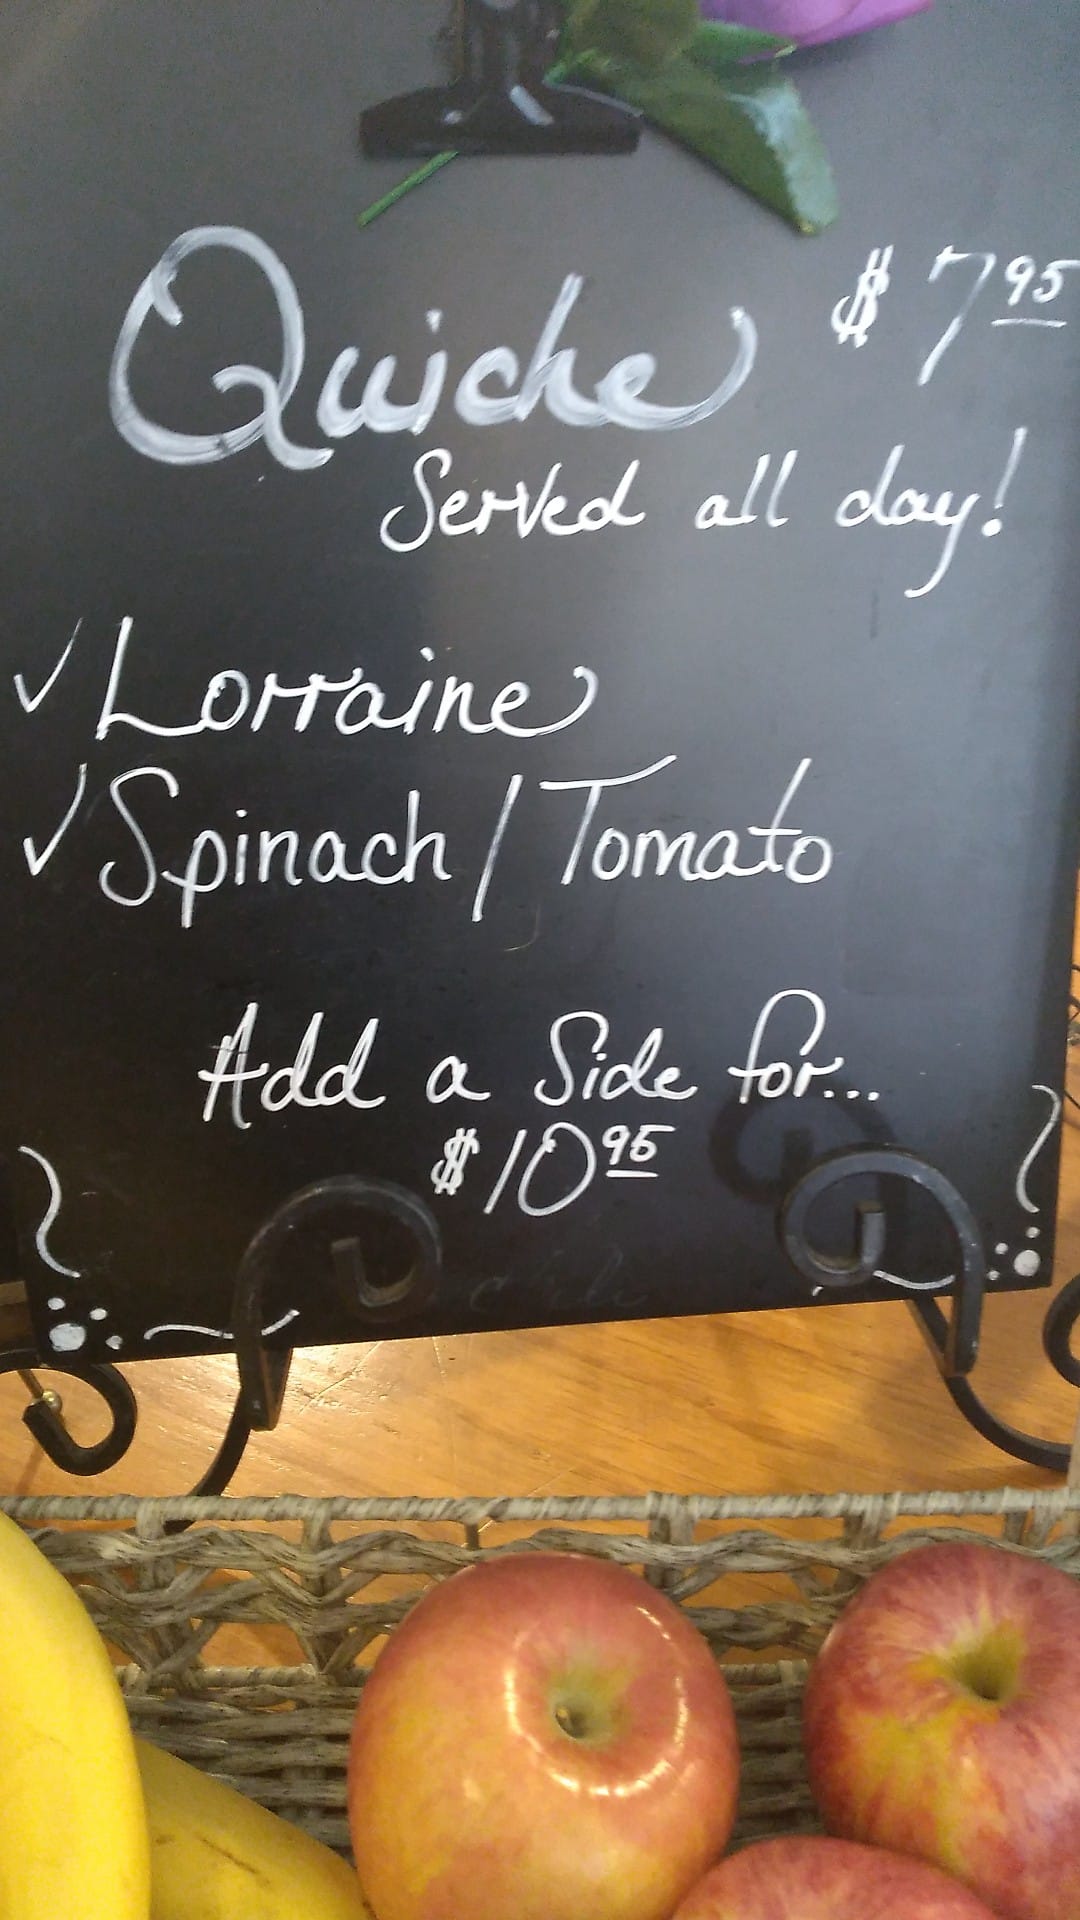 Quiche $7.95
Served all day!
✓ Lorraine
✓ Spinach / Tomato
Add a Side for...
$10.95